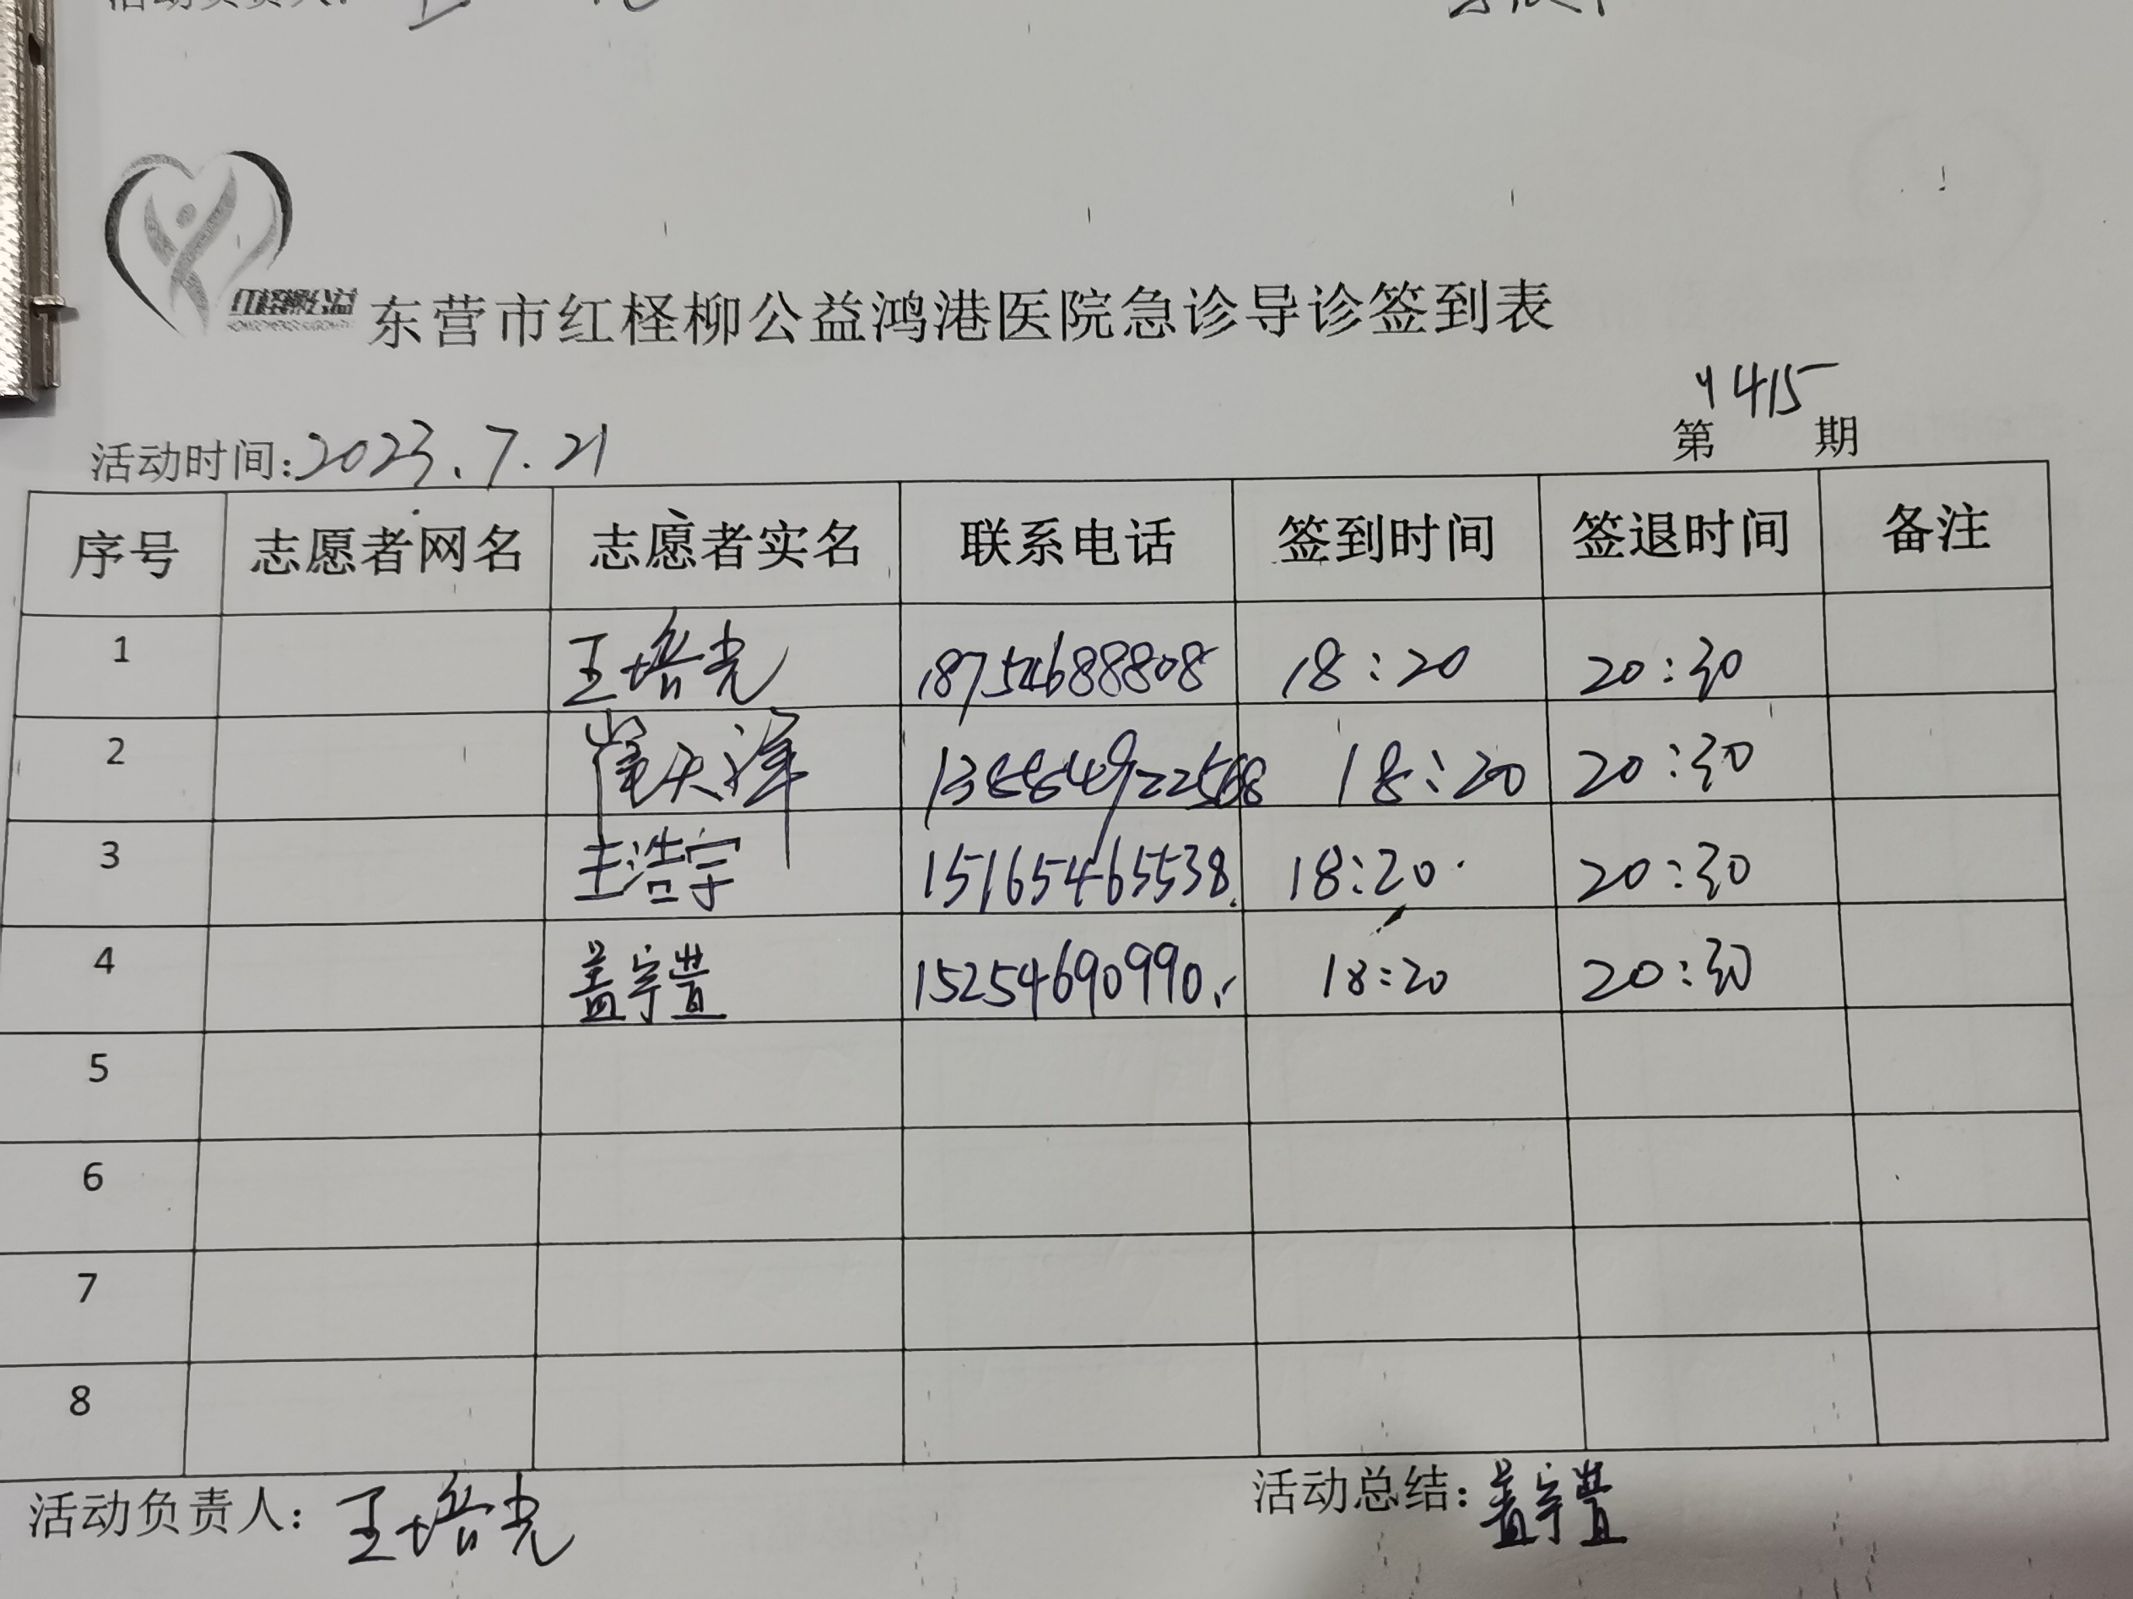 活动负责人：王
红柽柳公益
东营市红柽柳公益鸿港医院急诊导诊签到表
活动时间:2023.7.21 第1415期
序号 志愿者网名 志愿者实名 联系电话 签到时间 签退时间 备注
1 王培光 18754688808 18:20 20:30
2 崔天泽 18:20 20:30
3 王浩宇 15165465538 18:20 20:30
4 盖宇萱 15254690990 18:20 20:30
5
6
7
8
活动负责人：王培光 活动总结：盖宇萱